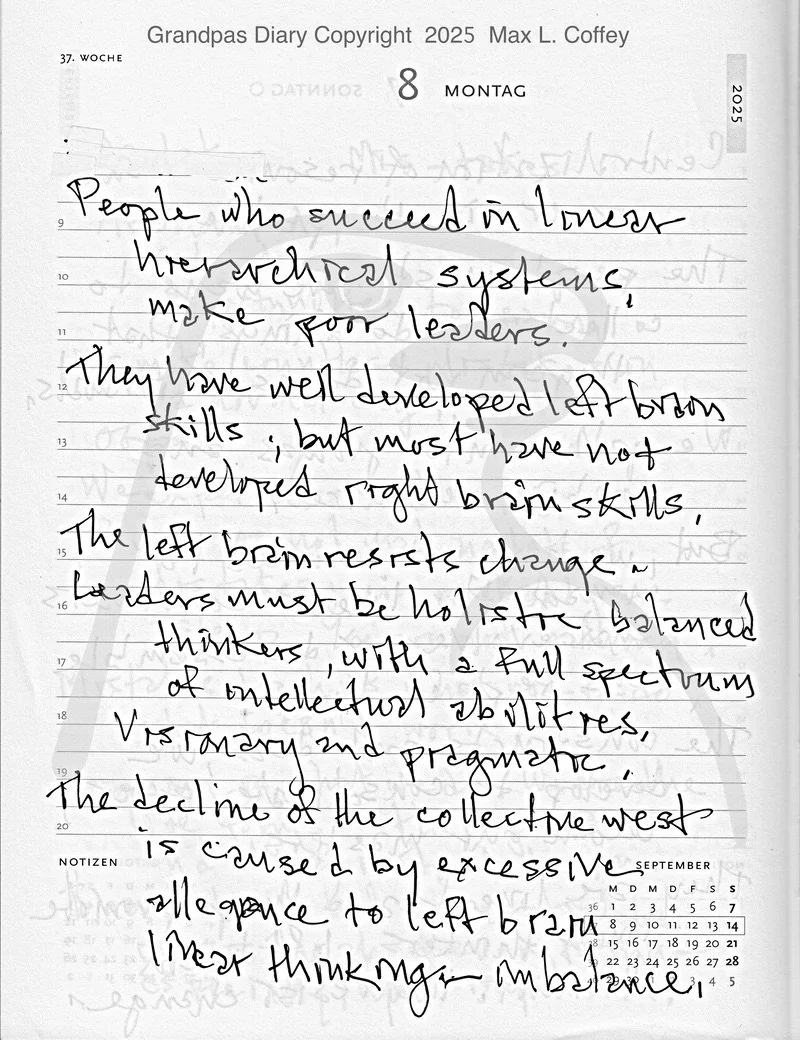 Grandpas Diary Copyright 2025 Max L. Coffey
37. WOCHE
8 MONTAG
2025
People who succeed in linear
9
hierarchical systems,
10
make poor leaders.
11
They have well developed left brain
12
skills, but most have not
13
developed right brain skills,
14
The left brain resists change.
15
Leaders must be holistic balanced
16
thinkers, with a full spectrum
17
of intellectual abilities,
18
Visionary and pragmatic,
19
The decline of the collective west
20
is caused by excessive
NOTIZEN
allegance to left brain
linear thinking - imbalance,
SEPTEMBER
M D M D F S S
36 1 2 3 4 5 6 7
8 9 10 11 12 13 14
38 15 16 17 18 19 20 21
22 23 24 25 26 27 28
29 30 1 2 3 4 5